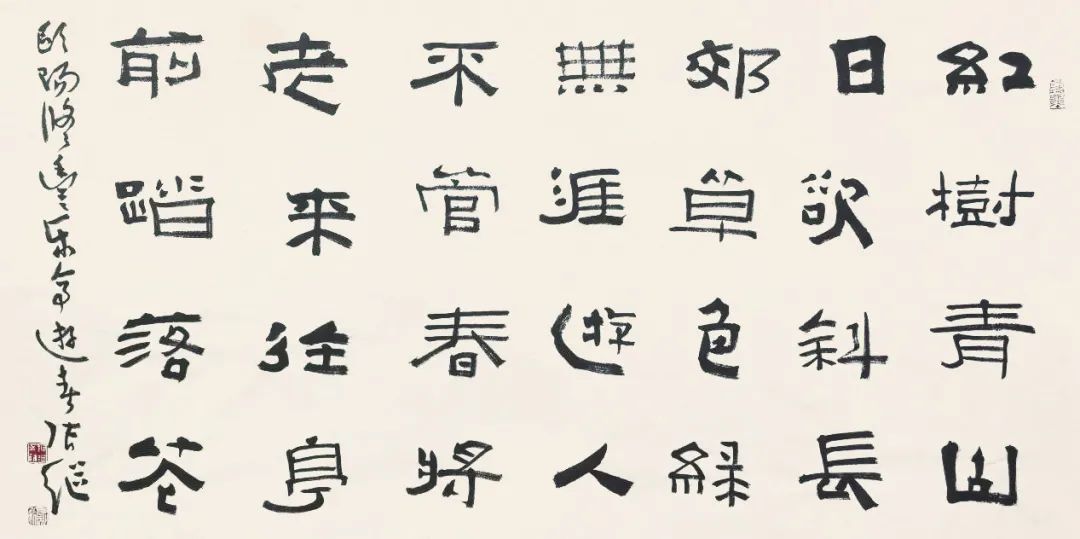 紅樹青山
日欲斜長
郊草色綠
無涯遊人
不管春將
老來往亭
前踏落花
歐陽修豐樂亭遊春張繼